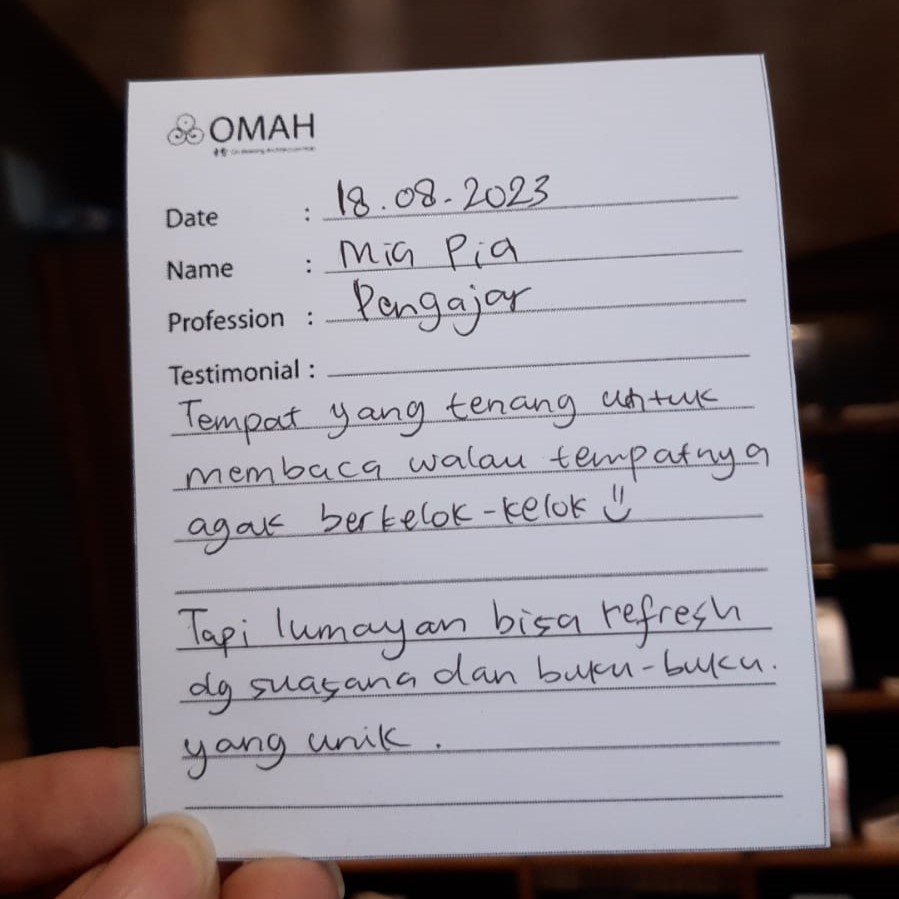 OMAH
Date : 18.08.2023
Name : Mia Pia
Profession : Pengajar
Testimonial :
Tempat yang tenang untuk
membaca walau tempatnya
agak berkelok-kelok
Tapi lumayan bisa refresh
dg suasana dan buku-buku.
yang unik.